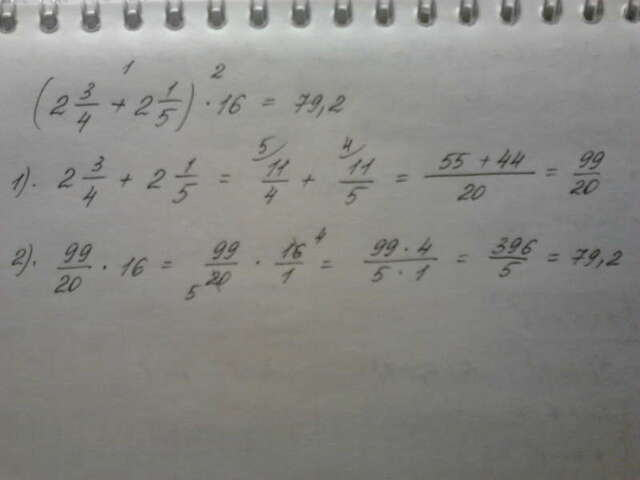 1 2
(2 3/4 + 2 1/5) · 16 = 79,2
1). 2 3/4 + 2 1/5 = 5/ 11/4 + 4/ 11/5 = 55 + 44/20 = 99/20
2). 99/20 · 16 = 99/20 5 · 16/1 4 = 99 · 4/5 · 1 = 396/5 = 79,2